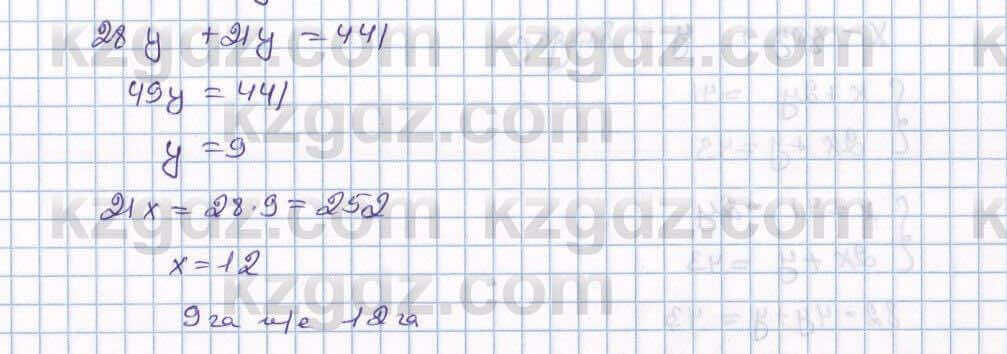 28 y + 21 y = 441
49 y = 441
y = 9
21 x = 28 · 9 = 252
x = 12
9 га 12 га
kzgdz.com
kzgdz.com
kzgdz.com
kzgdz.com
kzgdz.com
kzgdz.com